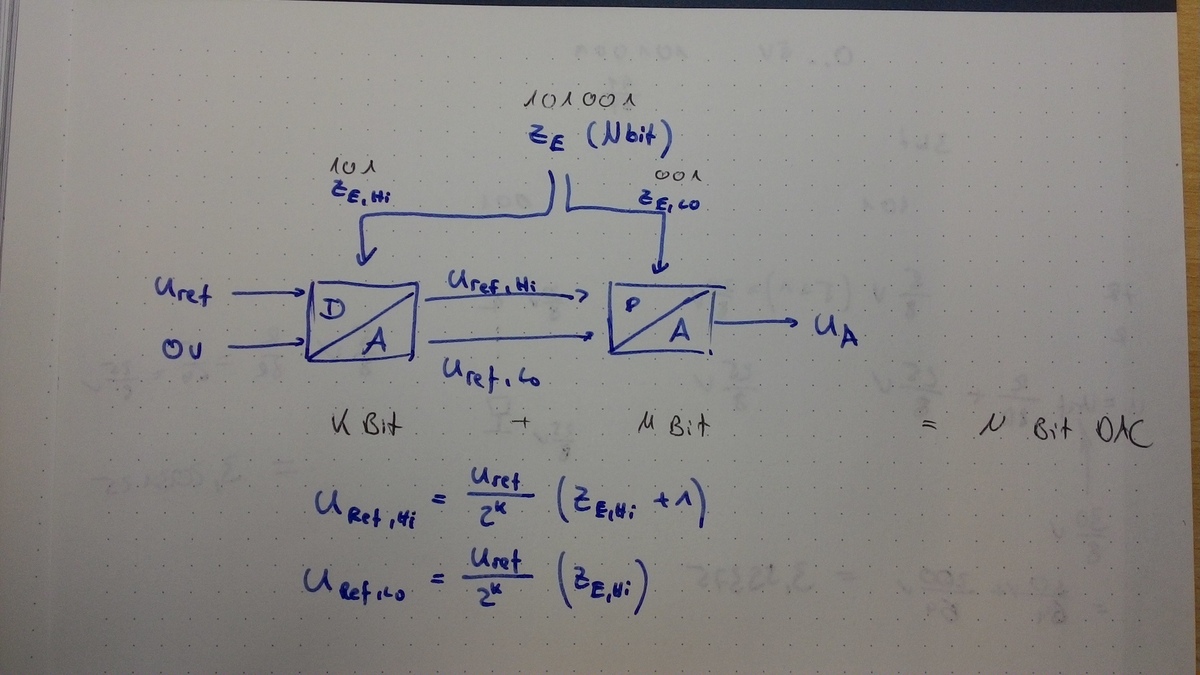 101001
ZE (Nbit)
101
ZE,Hi
001
ZE,Lo
Uref
0V
D
A
Uref,Hi
Uref,Lo
D
A
UA
K Bit + M Bit = N Bit DAC
URef,Hi = Uref/2^K (ZE,Hi + 1)
URef,Lo = Uref/2^K (ZE,Hi)